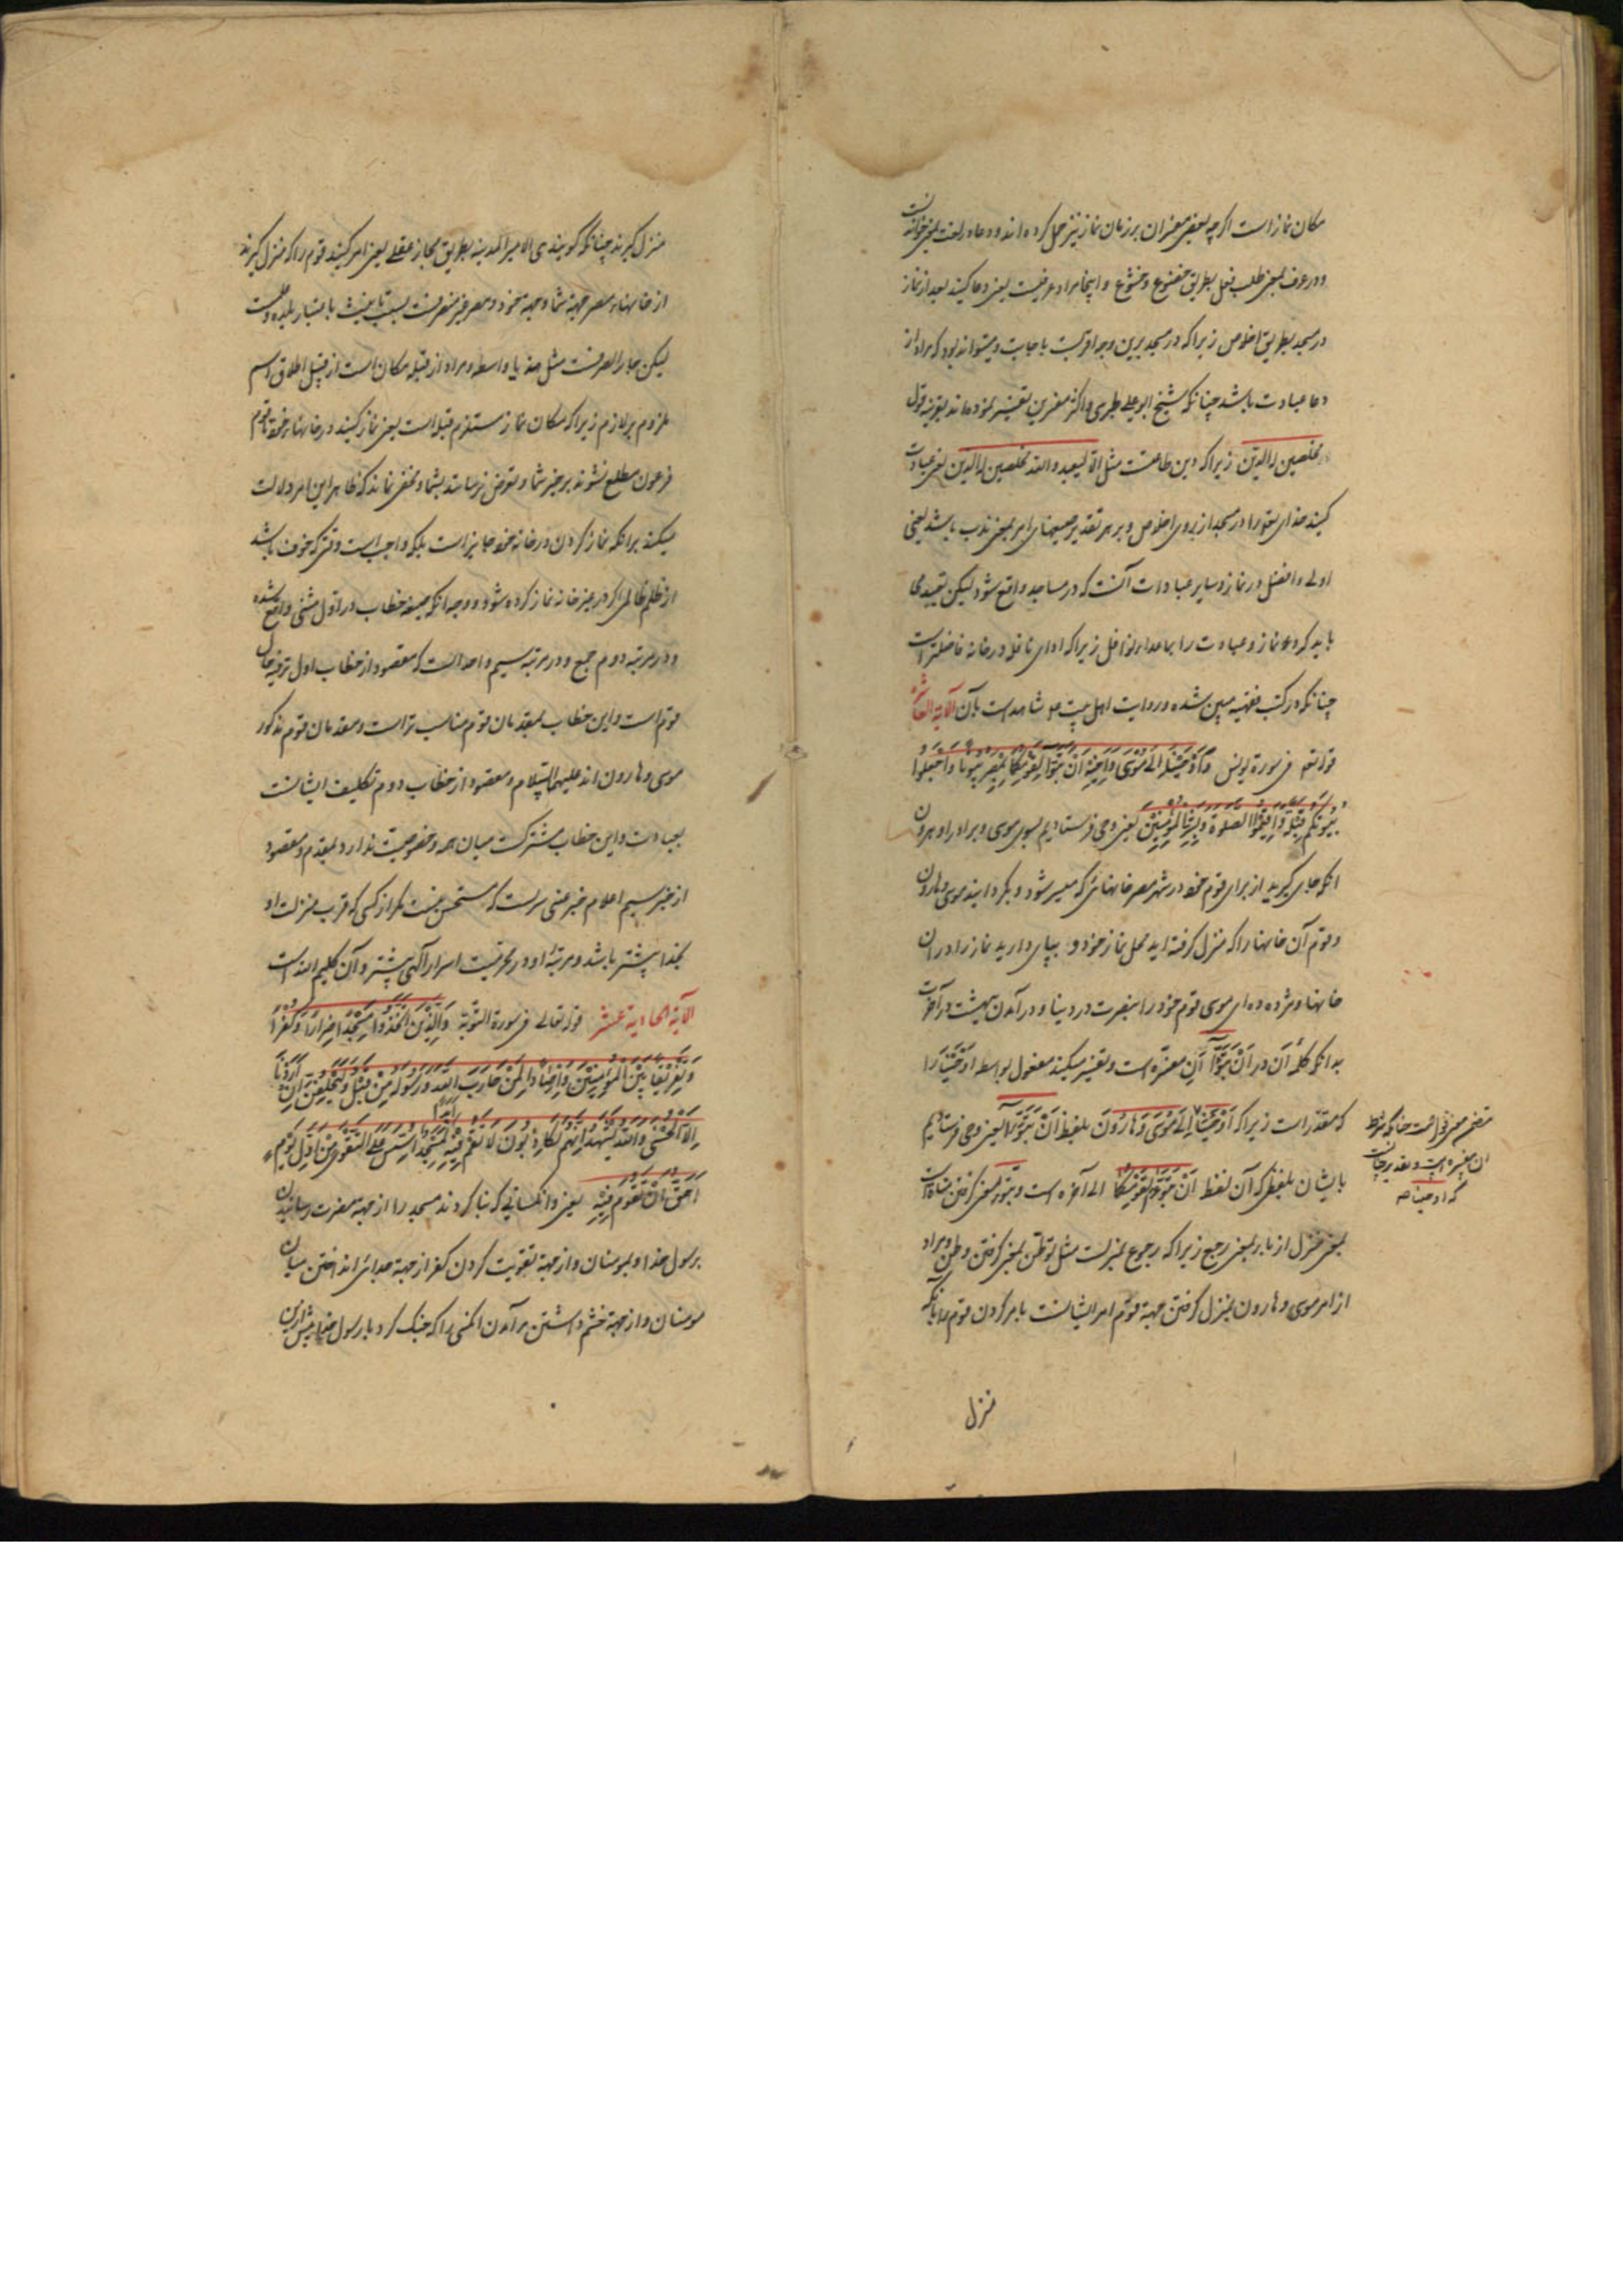 مکان نماز است اگر چه بعضی مفسران بر زمان نماز نیز حمل کرده اند و دعا در لغت بمعنی خواندنست
و در عرف بمعنی طلب فعل بطریق خضوع و خشوع و اینجا مراد عرفیست یعنی دعا کنید بعد از نماز
در مسجد بطریق اخلاص زیرا که در مسجد برین وجه اقربست باجابت و میتواند بود که مراد از
دعا عبادت باشد چنانکه شیخ ابو علی طبری و اکثر مفسرین تفسیر نموده اند بقرینه قول
مخلصین له الدین زیرا که دین طاعتست مثل الا لیعبدوا الله مخلصین له الدین یعنی عبادت
کنید خدای تعالی را در مسجد از روی اخلاص و بر هر تقدیر صیغهای امر بمعنی ندب باشد یعنی
اولی و افضل در نماز و سایر عبادات آنست که در مساجد واقع شود لیکن تقیید
باید کرد نماز و عبادت را بماعدای نوافل زیرا که ادای نافله در خانه فاضلتر است
چنانکه در کتب فقهیه مبین شده و روایت اهل بیت ع شاهد است بآن الآیة العاشرة
قوله تعه فی سورة یونس وَاَوْحَیْنَا اِلیٰ مُوْسیٰ وَاَخِیْهِ اَنْ تَبَوَّآ لِقَوْمِکُمَا بِمِصْرَ بُیُوْتاً وَاجْعَلُوْا
بُیُوْتَکُمْ قِبْلَةً وَاَقِیْمُوا الصَّلوٰةَ وَبَشِّرِ الْمُؤْمِنِیْنَ یعنی وحی فرستادیم بسوی موسی و برادر او هرون
انکه جای گیرید از برای قوم خود در شهر مصر خانهائی که میسر شود و بگردانید موسی و هارون
و قوم آن خانهها را که منزل گرفته اید محل نماز خود و بپای دارید نماز را در ان
خانها و مژده ده ای موسی قوم خود را بنصرت در دنیا و در آمدن بهشت در آخرت
بدانکه کلمه اَنْ در اَنْ تَبَوَّآ اَن مفسّره است و تفسیر میکند مفعول بواسطه اَوْحَیْنَا را
که مقدّر است زیرا که اَوْحَیْنَا اِلیٰ مُوْسیٰ وَهَارُوْنَ بلفظ اَنْ تَبَوَّآ یعنی وحی فرستادیم
بایشان بلفظی که آن لفظ اَنْ تَبَوَّآ لِقَوْمِکُمَا الی آخره است و تبوّء بمعنی گرفتن مباءة است
بمعنی منزل از باء بمعنی رجع زیرا که رجوع بمنزلست مثل توطّن بمعنی گرفتن وطن و مراد
از امر موسی و هارون بمنزل گرفتن جهة قوم امر ایشانست بامر کردن قوم را بآنکه
که اوحینا صه
منزل
منزل گیرند چنانکه گویند بنی الامیر المدینة بطریق مجاز عقلی یعنی امر کنید قوم را که منزل گیرند
از خانهاء مصر جهة شما و جهة خود و مصر غیر منصرفست بسبب تانیث باعتبار بلده و علمیت
لیکن جار الصرفست مثل هند یا واسطه و مراد از قبله مکان است از قبیل اطلاق اسم
ملزوم بر لازم زیرا که مکان نماز مستلزم قبله است یعنی نماز کنید در خانهاء خود تا قوم
فرعون مطلع نشوند بر خبر شما و تعرض نرسانند بشما و مخفی نماند که ظاهر این امر دلالت
میکند برانکه نماز کردن در خانه خود جایز است بلکه واجب است وقتی که خوف باشد
از ظلم ظالمی اگر در غیر خانه نماز کرده شود و وجه انکه صیغه خطاب در اوّل مثنی واقع شده
و در مرتبه دوم جمع و در مرتبه سیم واحد آنست که مقصود از خطاب اول ترفیه حال
قوم است و این خطاب بمقدمان قوم مناسب تر است و مقدمان قوم مذکور
موسی و هارون اند علیهما السّلام و مقصود از خطاب دوم تکلیف ایشانست
بعبادت و این خطاب مشترکست میان همه و خصوصیّت ندارد بمقدم و مقصود
از خبر سیم اعلام خبر عنی سریست که مستحسن نیست مگر از کسی که قرب منزلت او
بخدا بیشتر باشد و مرتبهٔ او در محرمیّت اسرار آلهی بیشتر و آن کلیم الله است
الآیة الحادیة عشر قوله تعالی فی سورة التوبة وَالَّذِیْنَ اتَّخَذُوْا مَسْجِداً ضِرَاراً وَکُفْراً
وَتَفْرِیْقاً بَیْنَ الْمُؤْمِنِیْنَ وَاِرْصَاداً لِمَنْ حَارَبَ اللّٰهَ وَرَسُوْلَهُ مِنْ قَبْلُ وَلَیَحْلِفُنَّ اِنْ اَرَدْنَا
اِلَّا الْحُسْنیٰ وَاللّٰهُ یَشْهَدُ اِنَّهُمْ لَکَاذِبُوْنَ لَا تَقُمْ فِیْهِ اَبَداً لَمَسْجِدٌ اُسِّسَ عَلَی التَّقْویٰ مِنْ اَوَّلِ یَوْمٍ
اَحَقُّ اَنْ تَقُوْمَ فِیْهِ یعنی و انکسانی که بنا کردند مسجد را از جهة مضرت رسانیدن
برسول خدا و بمومنان و از جهة تقویت کردن کفر از جهة جدائی انداختن میان
مومنان و از جهة چشم داشتن بر آمدن انکسی را که جنگ کرد با رسول خدا پیش ازین